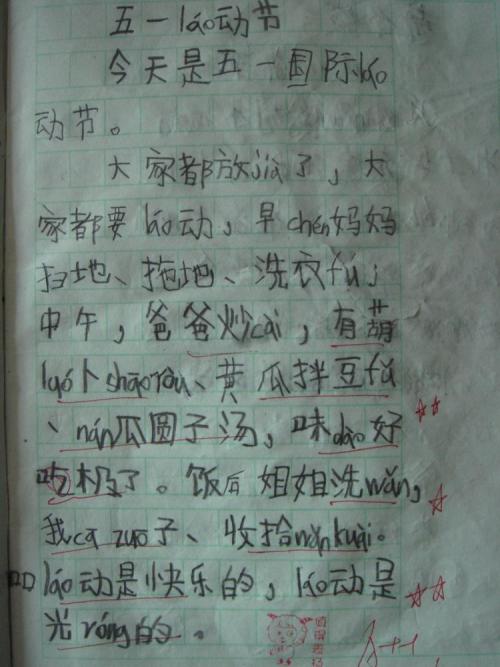 五一láo动节
今天是五一国际láo
动节。
大家都放jià了，大
家都要láo动，早chén妈妈
扫地、拖地、洗衣fú，
中午，爸爸炒cài，有葫
luó卜shāoròu、黄瓜拌豆fǔ
、nán瓜圆子汤，味dào好
吃极了。饭后姐姐洗wǎn，
我cā zuō子、收拾wǎn kuài。
láo动是快乐的，láo动是
光róng的。